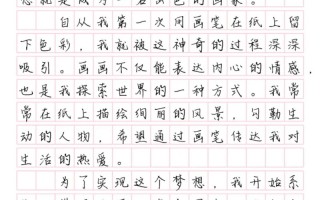 自从我第一次用画笔在纸上留
下色彩，我就被这神奇的过程深深
吸引。画画不仅能表达内心的情感，
也是我探索世界的一种方式。我常
常在纸上描绘绚丽的风景，勾勒生
动的人物，希望通过画笔传达我对
生活的热爱。
为了实现这个梦想，我开始系